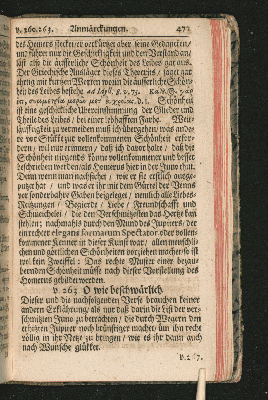 v. 260. 263. Anmärckungen. 471
des Homers
der Geschicklichkeit und den Verstand an
läst als die äusserliche Schönheit des Leibes gar aus.
Der Griechische Ausleger dieses Theocritus / saget gar
artig mit kurtzen Worten worin die äusserliche Schön-
heit des Leibes bestehe
d. i. Schönheit
ist eine geschickliche Übereinstimmung der Glieder und
Theile des Leibes / bey einer lebhafften Farbe. Weit-
läufftigkeit zu vermeiden muß ich übergehen / was ande-
re vor Stücke zur vollkommenen Schönheit erfor-
dern / will nur erinnern / daß ich davor halte / daß die
Schönheit nirgends könne vollkommener und besser
beschrieben werden als im Homerus hier in der Juno thut.
Denn wenn man nachsiehet / wie er sie erstlich ausge-
putzt hat / und was er ihr mit dem Gürtel der Venus
vor sonderbahre Gaben beygeleget / nemlich alle Liebes-
Reitzungen / Begierde / Liebe / Freundschafft und
Schmeichelei / die den Verschmitzesten das Hertze kan
stehlen; nachmahls durch den Mund des Jupiters / der
ein rechter elegans formarum Spectator oder vollen-
kommener Kenner in dieser Kunst war / allen menschli-
chen und göttlichen Schönheiten vorziehen
wol kein Zweiffel: Das rechte Muster einer bezau-
bernden Schönheit müsse nach dieser Vorstellung des
Homerus gebildet werden.
v. 263 O wie beschwärlich
Dieser und die nachfolgenden Verse brauchen keiner
andern Erklährung / als nur daß darin die List der ver-
schmitzten Juno zu betrachten / die durch Wegern den
erhitzten Jupiter noch brünstiger machet / um ihn recht
völlig in ihr Netz zu bringen / wie es ihr dann auch
nach Wunsche glückte.
v. 267.